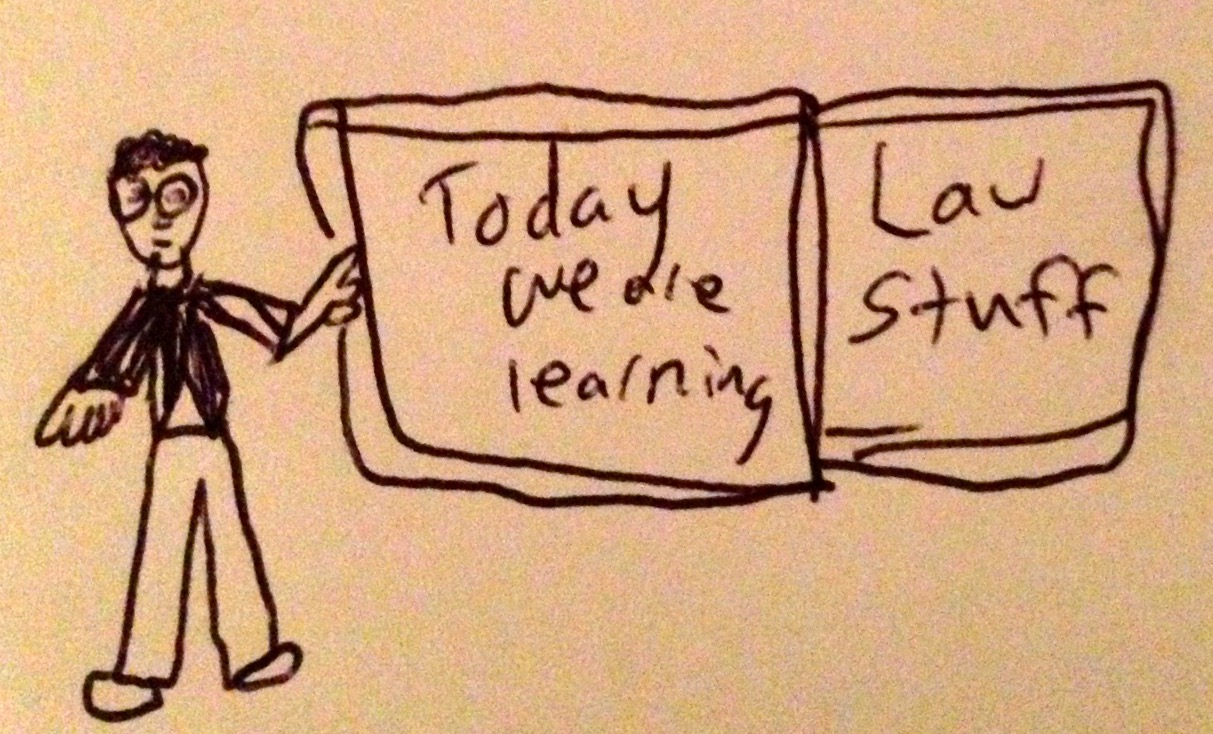 Today
we are
learning
Law
Stuff